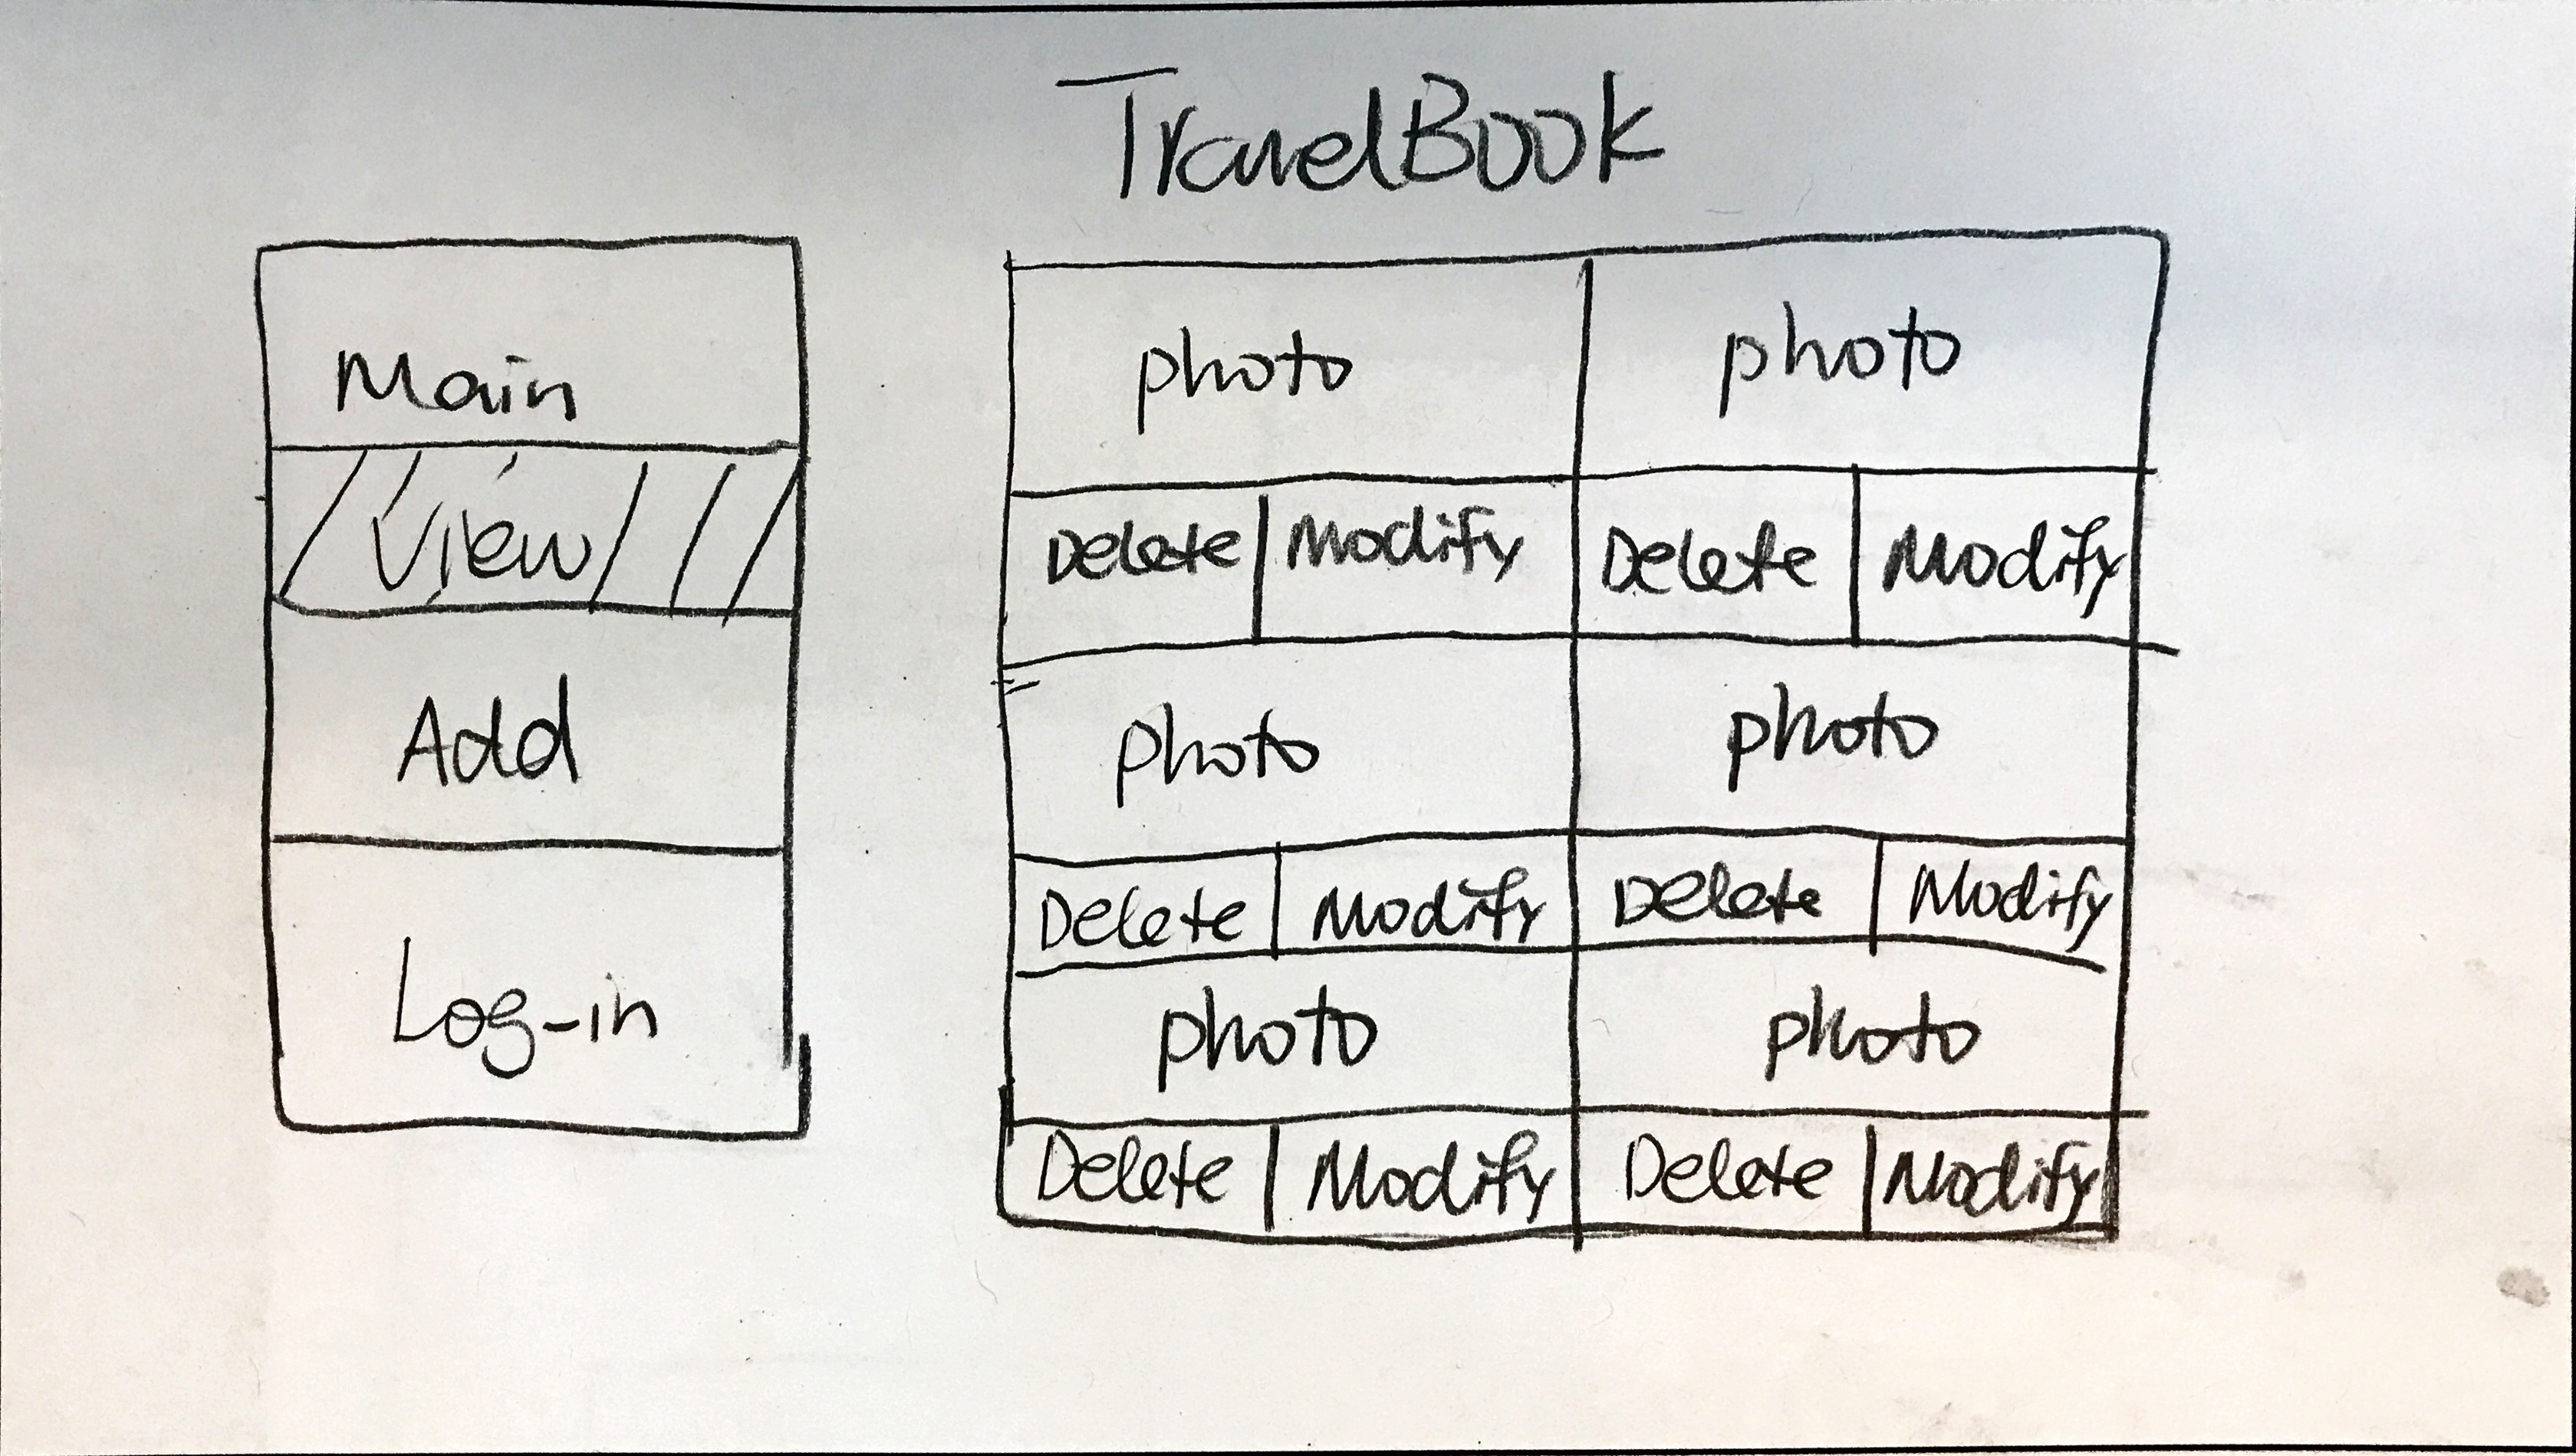 TravelBook
Main
View
Add
Log-in
photo photo
Delete Modify Delete Modify
photo photo
Delete Modify Delete Modify
photo photo
Delete Modify Delete Modify